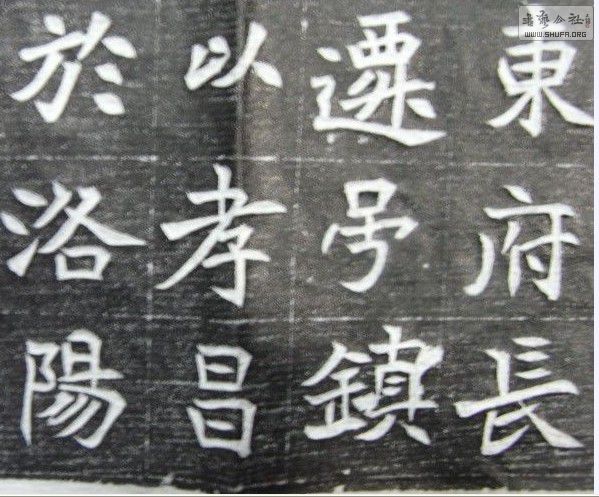 東府長
遷鎮
以孝昌
於洛陽
書藝公社
WWW.SHUFA.ORG